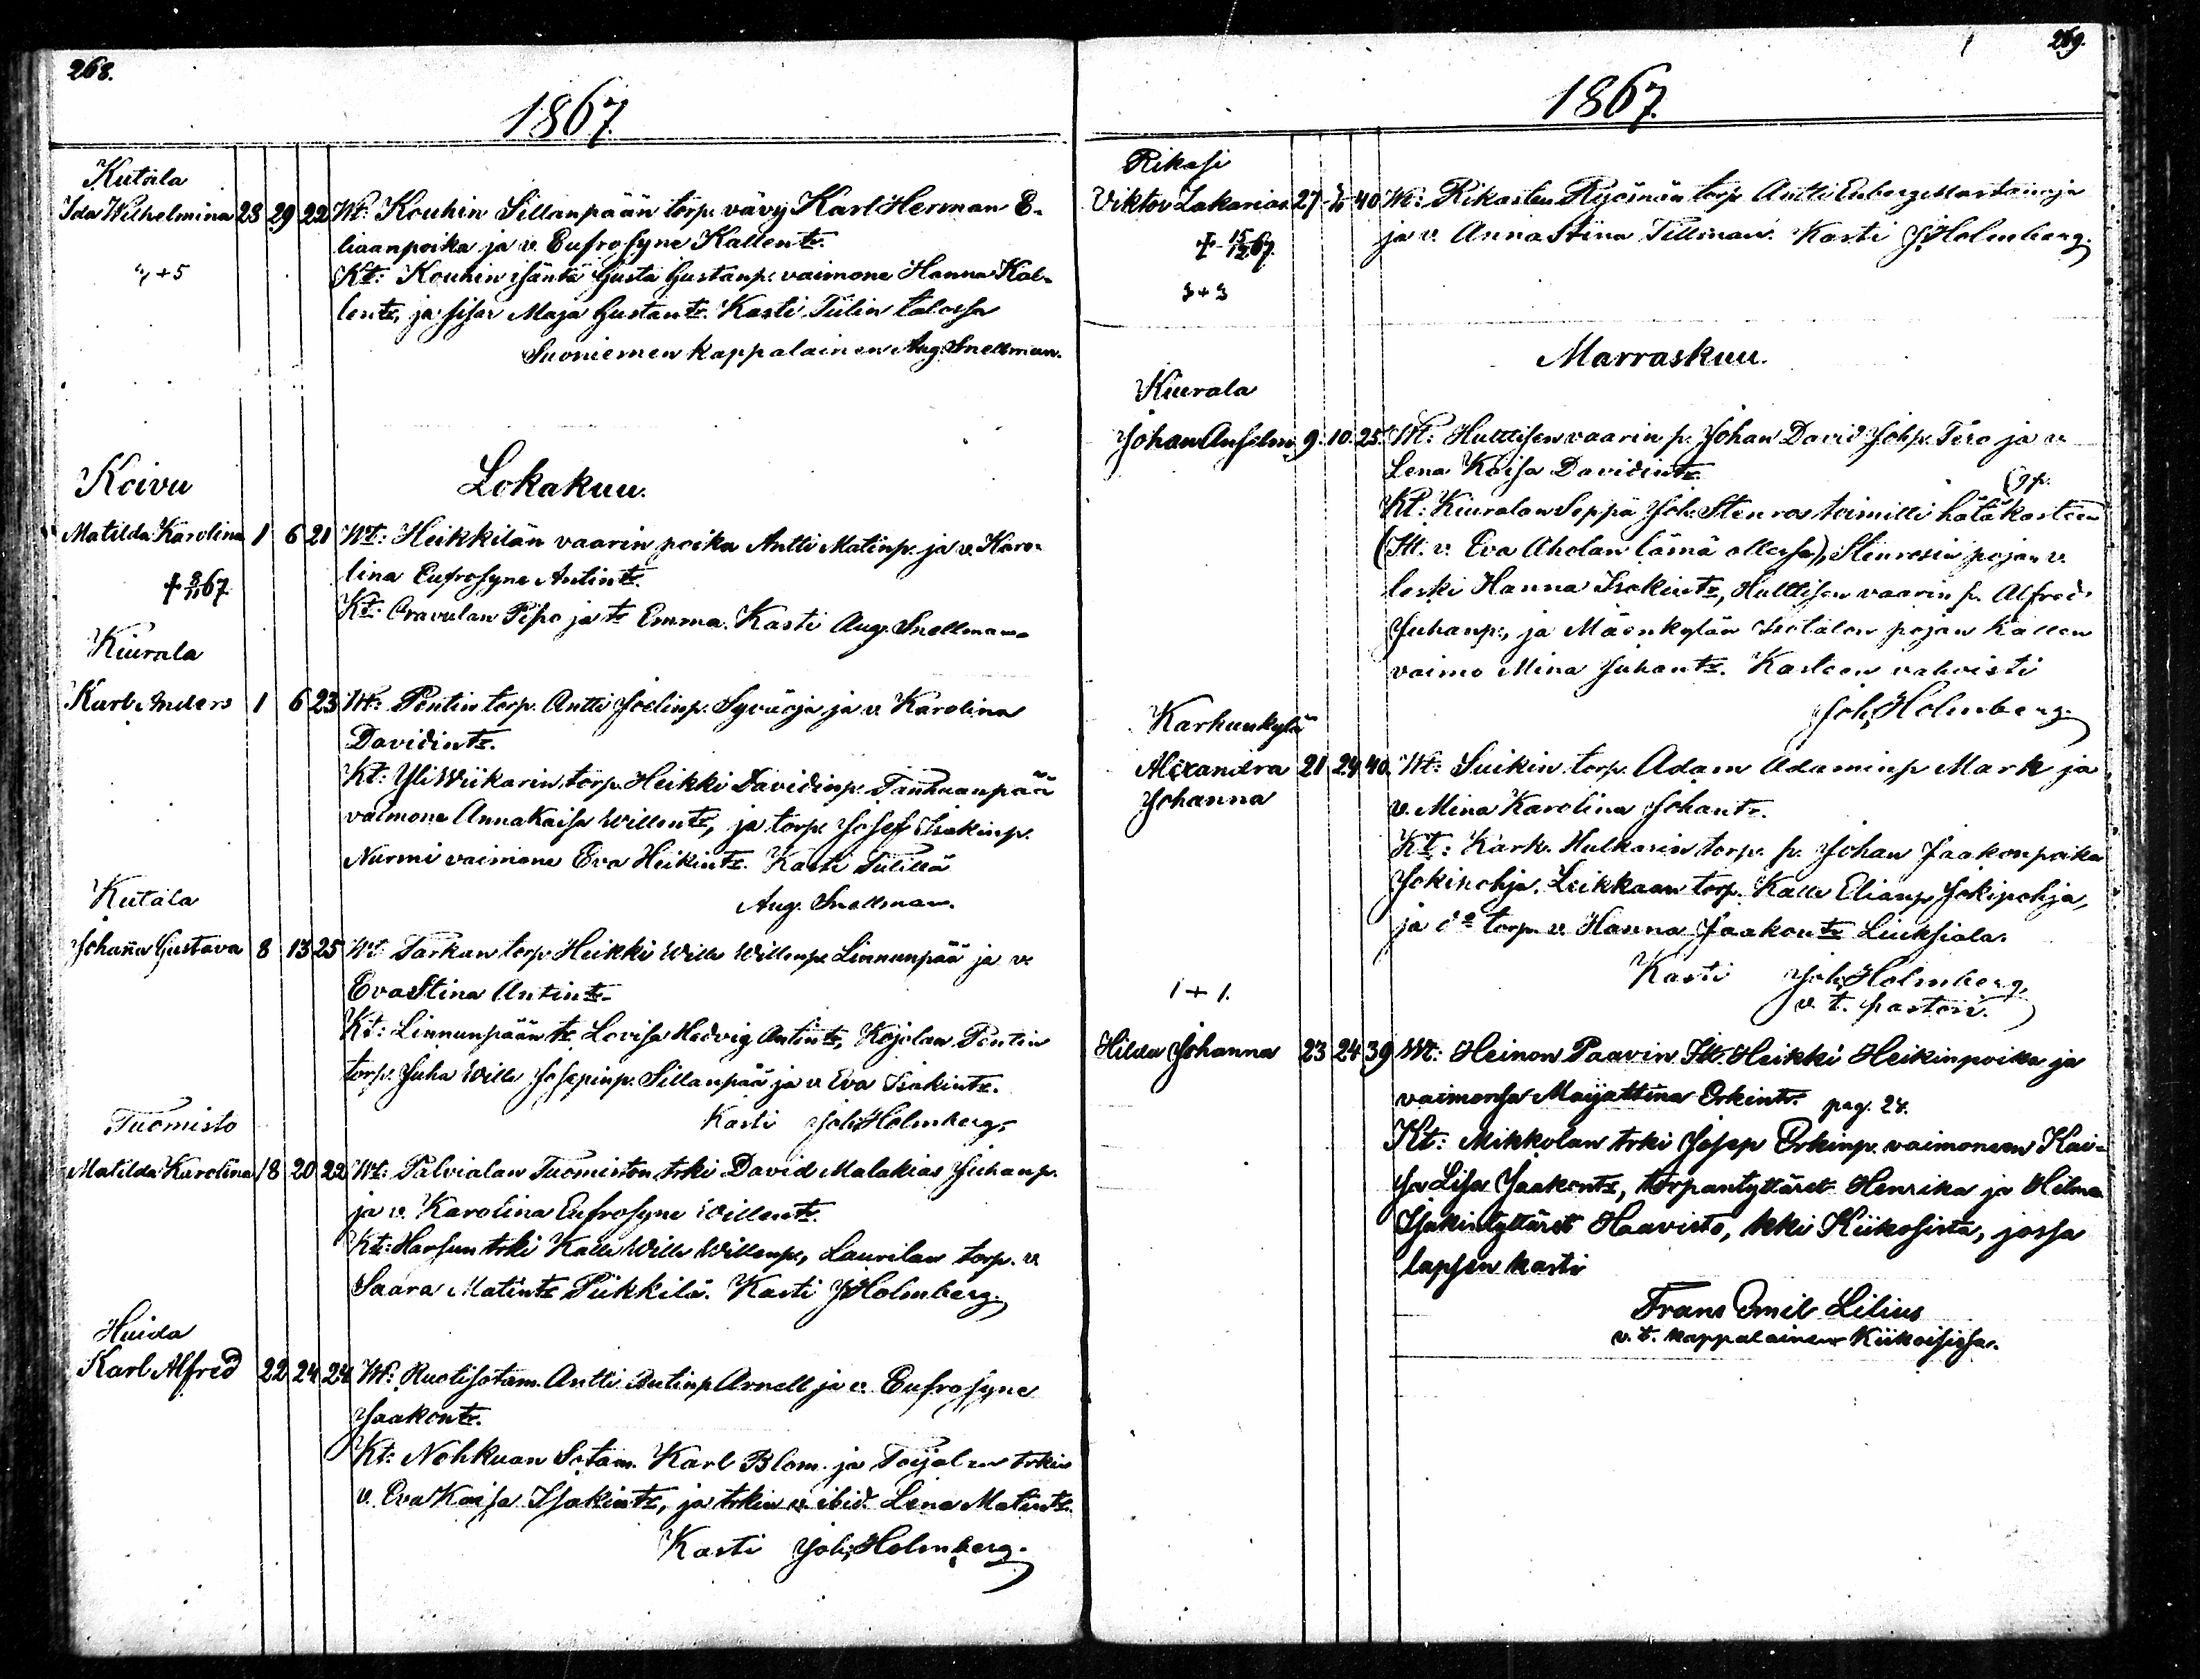 268.
1867.
Kutala
Ida Wilhelmina 28 29 22 Wt: Kouhin Sillanpään torp. vävy Karl Herman E-
liaanpoika ja v. Eufrosyne Kallentr.
7+5
Kt: Kouhin isäntä Gusta Gustanp. vaimone Hanna Kal-
lentr, ja sisar Maja Gustantr. Kasti Tulin talossa
Suoniemen kappalainen Aug. Snellman.
Koivu
Lokakuu.
Matilda Karolina 1 6 21 Wt: Heikkilän vaarin poika Antti Matinp. ja v. Karo-
lina Eufrosyne Antintr.
Kt: Oravulan Pispa ja tr Emma. Kasti Aug. Snellman.
Kiurala
Karl Anders 1 6 23 Wt: Pentin torp. Antti Joelinp. Syväoja ja v. Karolina
Davidintr.
Kt: Yli Wiikarin torp. Heikki Davidinp. Tanhuanpää
vaimone Anna Kaisa Willentr, ja torp. Josef Isakinp.
Nurmi vaimone Eva Heikintr. Kasti
Aug. Snellman.
Kutala
Johanna Gustava 8 13 25 Wt: Tarkan torp. Heikki Wille Willenp. Linnunpää ja v.
Eva Stina Antintr.
Kt: Linnunpään tr. Lovisa Hedvig Antintr, Kojolan Pentin
torp. Juha Wille Josepinp. Sillanpää ja v. Eva Isakintr.
Kasti Joh. Holmberg.
Tuomisto
Matilda Karolina 18 20 22 Wt: Palvialan Tuomiston trki David Malakias Juhanp.
ja v. Karolina Eufrosyne Willentr.
Kt: Harsun trki Kalle Wille Willenp., Laurilan torp. v.
Saara Matintr Piikkilä. Kasti J. Holmberg.
Huida
Karl Alfred 22 24 24 Wt: Ruotisotam. Antti Antinp. Arnell ja v. Eufrosyne
Jaakontr.
Kt: Nohkuan Sotam. Karl Blom. ja Toijalan trkin
v. Eva Kaisa Isakintr, ja trkin v. ibid. Lena Matintr.
Kasti Joh. Holmberg.
269.
1867.
Rikasi
Viktor Zakarias 27 40 Wt: Rikasten Ryömän torp. Antti Enberg Mastanoja
ja v. Anna Stina Tillman. Kasti J. Holmberg.
+ 15/12 67.
3+3
Marraskuu.
Kiurala
Johan Anselm 9. 10. 25. Wt: Hulttisen vaarin p. Johan David Joh.p. Tero ja v.
Lena Kaisa Davidintr.
Kt: Kiuralan Seppä Joh. Stenros toimitti hätäkasteen
(Itt. v. Eva Aholan läsnä ollessa), Stenrosin pojan v.
leski Hanna Isakintr, Hulttisen vaarin p. Alfred
Juhanp., ja Mäenkylän Isotalon pojan Kallen
vaimo Mina Juhantr. Kasteen vahvisti
Joh. Holmberg.
Karhunkylä
Alexandra 21 24 40. Wt: Suikin torp. Adam Adaminp Mark ja
Johanna
v. Mina Karolina Johantr.
Kt: Kark. Hulkarin torp. p. Johan Jaakonpoika
Jokipohja, Leikkaan torp. Kalle Elianp Jokipohja,
ja do torp. v. Hanna Jaakontr Liuksiala.
Kasti Joh. Holmberg,
v. t. pastori.
1+1.
Hilda Johanna 23 24 39 Wt: Heinon Paavin Itt. Heikki Heikinpoika ja
vaimonsa Maijastiina Erkintr. pag. 24.
Kt: Mikkolan trki Josep Erkinp. vaimoneen Kai-
sa Lisa Jaakontr, torpantyttäret Henrika ja Hilma
Isakintyttäret Haavisto, kki Kiikosista, jossa
lapsen kasti
Frans Emil Lilius
v. t. kappalainen Kiikoisissa.